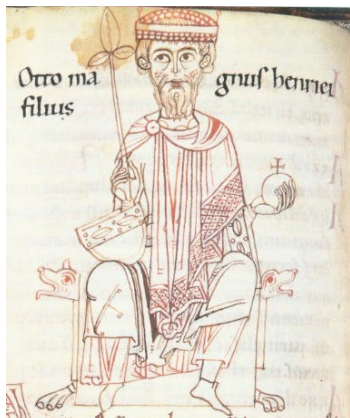 Otto ma gnus henrici
filius